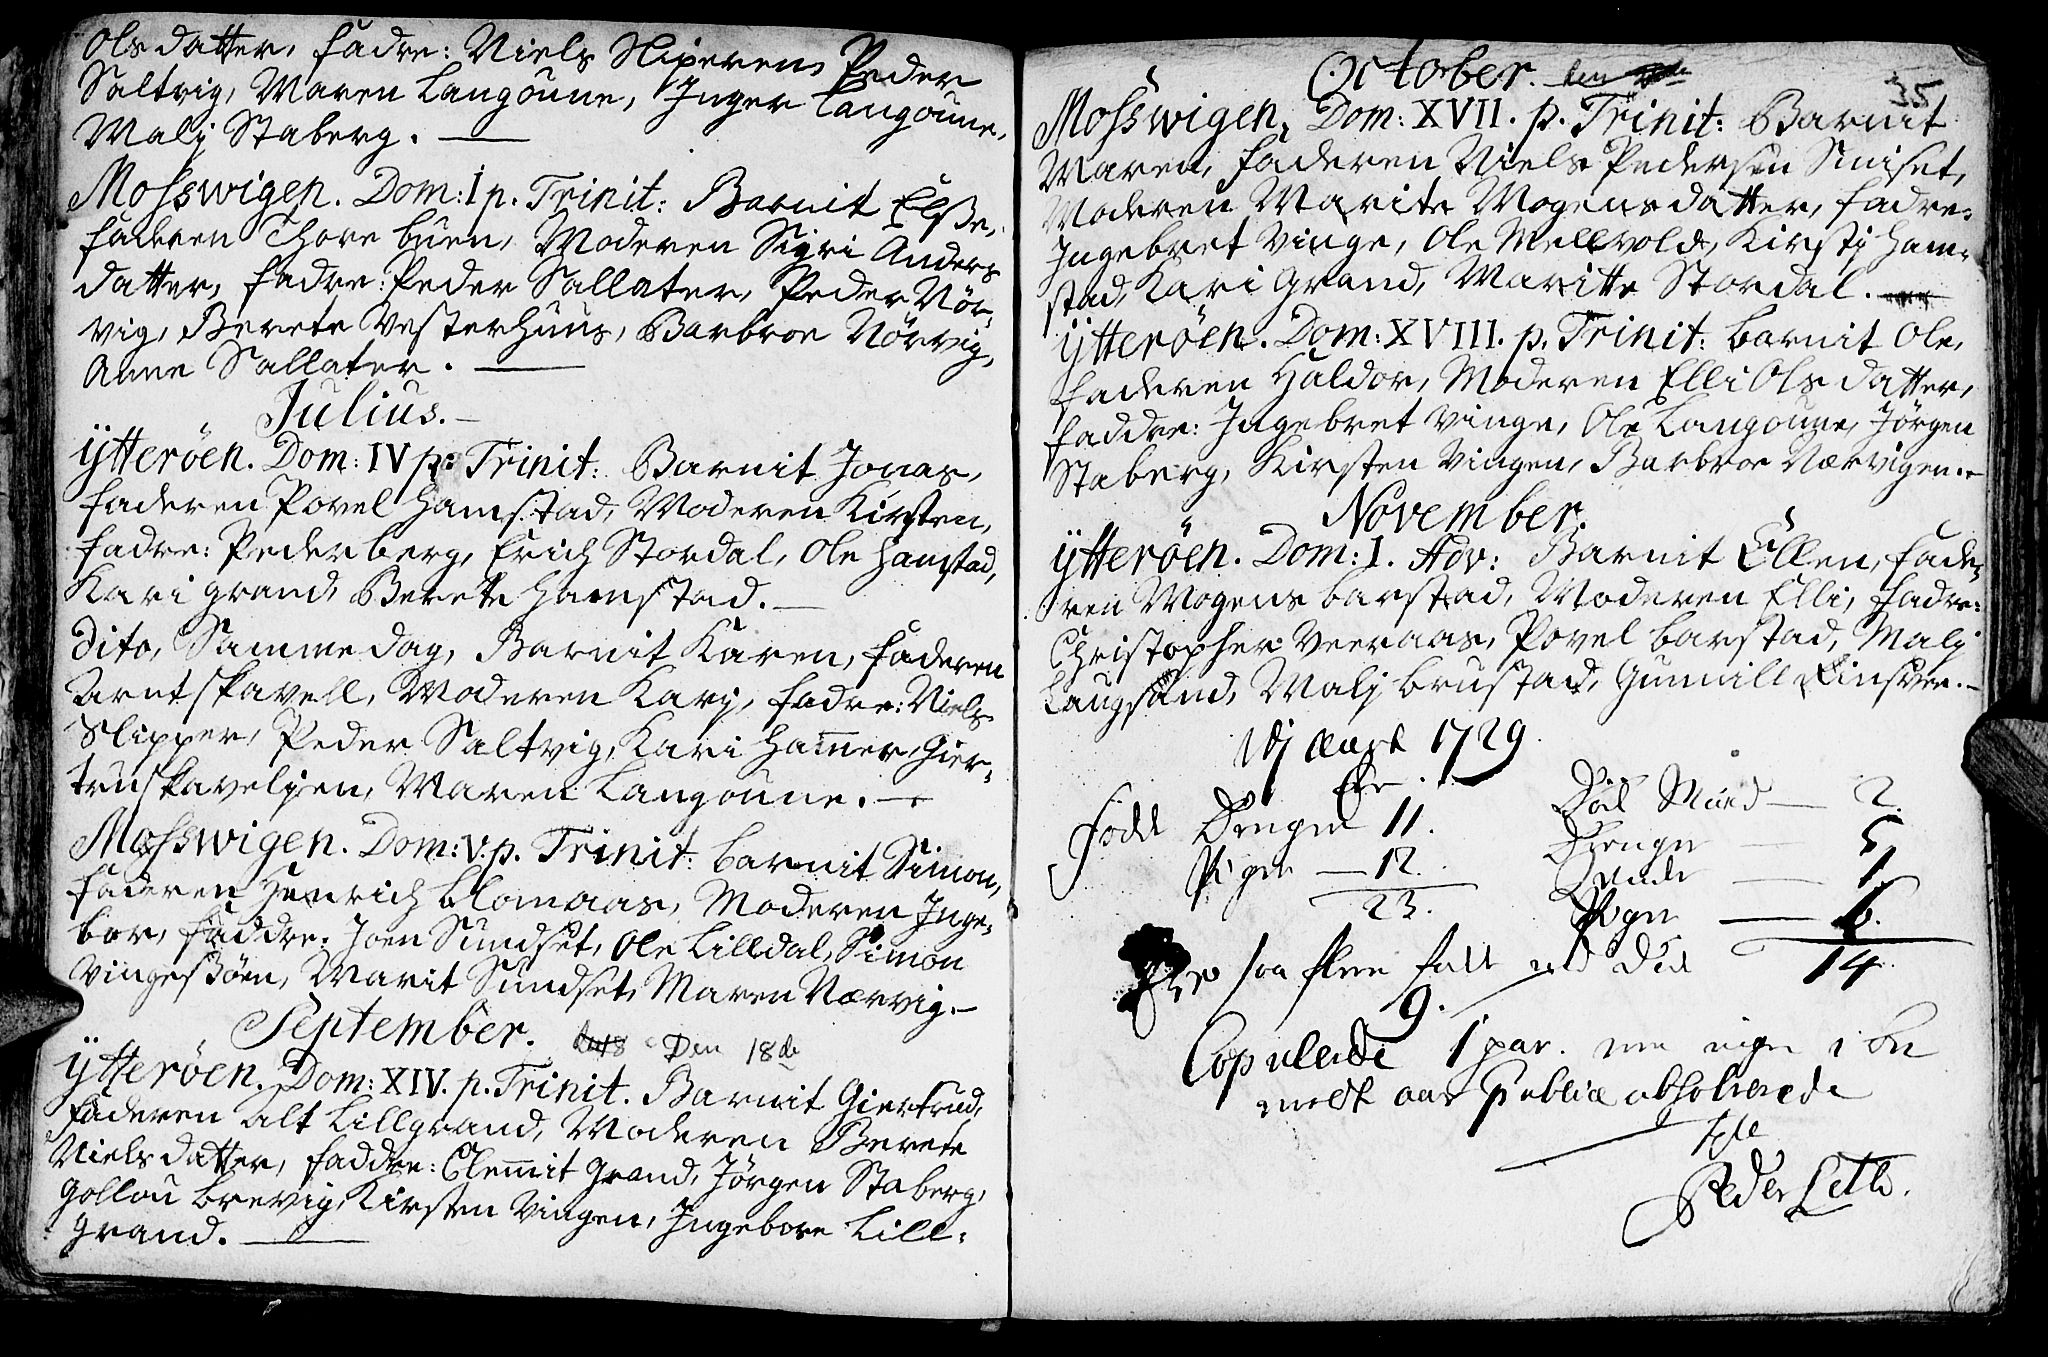 Olsdatter, Fadre: Niels Sliperen, Peder
Saltvig, Maren Langoune, Inger Langoune,
Malj Staberg.
Mosswigen. Dom: I p. Trinit: Barnit Elsse,
faderen Thore buen, Moderen Sigri Anders
datter, fadre: Peder Sallater, Peder Nör-
vig, Berete Vesterhuus, Barbroe Nörvig,
Anne Sallater.
Julius.
Ytteröen. Dom: IV p. Trinit: Barnit Jonas,
faderen Povel Hamstad, Moderen Kirsten,
fadre: Peder berg, Erich Stordal, Ole Hamstad,
Kari grand, Berette Hamstad.
Dito, Samme dag, Barnit Karen, faderen
Arnt skavell, Moderen Karj, fadre: Niels
Slipper, Peder Saltvig, Kari Hamer, Gier-
truskaveljen, Maren Langoune.
Mosswigen. Dom: V. p. Trinit: barnit Simon,
faderen Henrich blomaas, Moderen Inge-
bor, faddre: Joen Sundset, Ole Lilldal, Simon
Vingessöen, Marit Sundset, Maren Nærvig.
September. Den 18de
Ytteröen. Dom: XIV. p. Trinit. Barnit Giertrud,
faderen Alt Lillgrand, Moderen Berete
Nielsdatter, faddre: Clemmit Grand, Jörgen Staberg,
Gollou brevig, Kirsten Vingen, Ingebore Lill-
grand.
October. den
35
Mosswigen. Dom: XVII. p. Trinit: Barnit
Maren, faderen Niels Pedersen Sniset,
Moderen Marite Mogensdatter, fadre:
Ingebret Vinge, Ole Mellvold, Kirstj Ham-
stad, Kari grand, Maritte Stordal.
Ytteröen. Dom: XVIII. p. Trinit: barnit Ole,
faderen Haldor, Moderen Elli Olsdatter,
faddre: Ingebret Vinge, Ole Langoune, Jörgen
Staberg, Kirsten Vingen, Barbroe Nærvigen.
November.
Ytteröen. Dom: I. Adv: Barnit Ellen, fade-
ren Mogens barstad, Moderen Elli, fadre:
Christopher Veeraas, Povel barstad, Malj
Laugsand, Malj brustad, Gunnill Einsven.
Udj aaret 1729
Ere
Födde Drenge 11. Död Mænd 2.
Piger 12. Drenge 5
23. Qvinde 1
Piger 6.
14
Ere saa flere född end död
9.
Copulerede 1 par. men ingen i be
meldt aar Publice absolverede
Teste
Peder Leth.